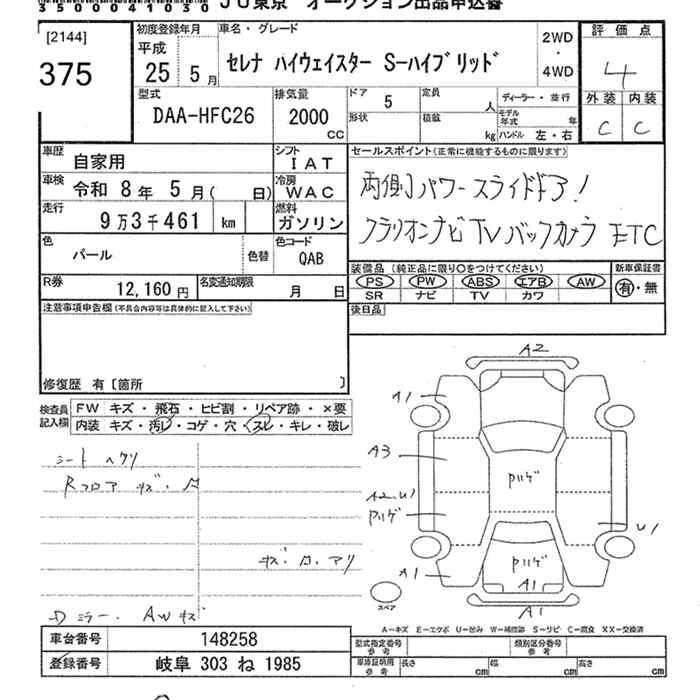 3 5 0 0 0 4 1 0 3 0 JU東京 オークション出品申込書
[2144]
375
初度登録年月
平成
25 5 月
車名・グレード
セレナ ハイウェイスター S-ハイブリッド
2WD
・
4WD
評価点
4
外装 内装
C C
型式
DAA-HFC26
排気量
2000
CC
ドア 5
形状
定員 人
積載 kg
ディーラー・並行
モデル年式 年
ハンドル 左・右
車歴 自家用
シフト IAT
車検 令和 8年 5月( 日)
冷房 WAC
走行 9万3千461 km
燃料 ガソリン
色 パール
色替
色コード QAB
R券 12,160円
名変通知期限 月 日
セールスポイント(正常に機能するものに限ります)
両側パワースライドドア!
クラリオンナビ TV バックカメラ ETC
装備品(純正品に限り○をつけてください)
PS PW ABS エアB AW
SR ナビ TV カワ
新車保証書
有・無
後日品
注意事項申告欄(不具合内容等は具体的に記入して下さい)
修復歴 有〔箇所 〕
検査員記入欄
FW キズ・飛石・ヒビ割・リペア跡・×要
内装 キズ・汚レ・コゲ・穴・スレ・キレ・破レ
シート ヘタリ
Rフロア キズ・凹
キズ・凹 アリ
Dミラー・AWキズ
A2
A1
A3
A2.U1
Pハゲ
A1
Pハゲ
Pハゲ
A1
A1
U1
スペア
A-キズ E-エクボ U-凹み W-補修跡 S-サビ C-腐食 XX-交換済
車台番号 148258
登録番号 岐阜 303 ね 1985
型式指定番号 参考
類別区分番号 参考
車庫証明用 参考
長さ cm
幅 cm
高さ cm